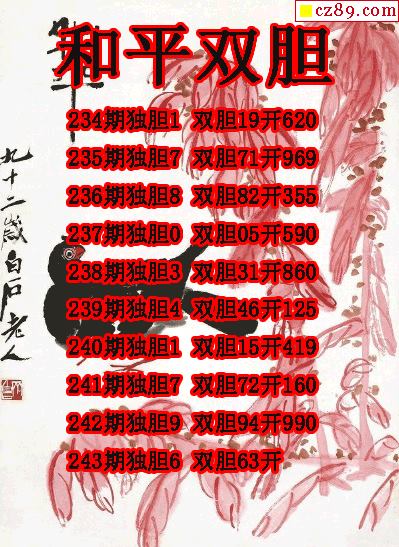 cz89.com
和平双胆
234期独胆1 双胆19开620
235期独胆7 双胆71开969
236期独胆8 双胆82开355
237期独胆0 双胆05开590
238期独胆3 双胆31开860
239期独胆4 双胆46开125
240期独胆1 双胆15开419
241期独胆7 双胆72开160
242期独胆9 双胆94开990
243期独胆6 双胆63开
九十二岁白石老人